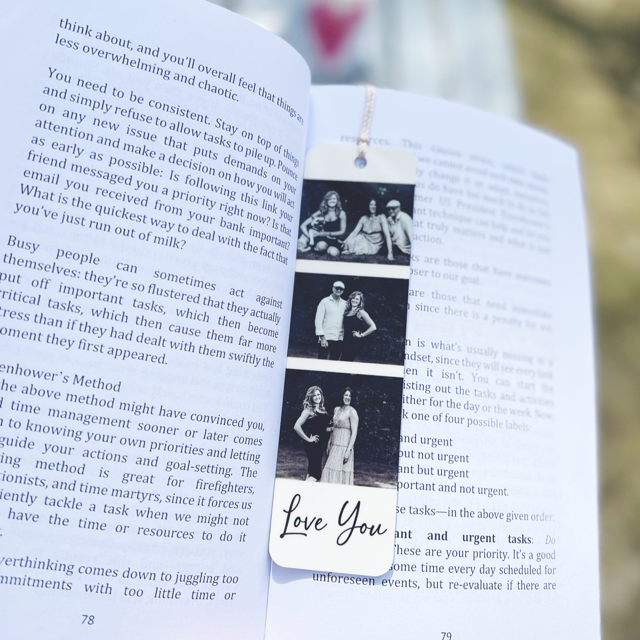 think about, and you'll overall feel that things are
less overwhelming and chaotic.
You need to be consistent. Stay on top of things
and simply refuse to allow tasks to pile up. Pounce
on any new issue that puts demands on your
attention and make a decision on how you will act
as early as possible: Is following this link your
friend messaged you a priority right now? Is that
email you received from your bank important?
What is the quickest way to deal with the fact that
you've just run out of milk?
Busy people can sometimes act against
themselves: they're so flustered that they actually
put off important tasks, which then become
critical tasks, which then cause them far more
stress than if they had dealt with them swiftly the
moment they first appeared.
enhower's Method
the above method might have convinced you,
d time management sooner or later comes
n to knowing your own priorities and letting
guide your actions and goal-setting. The
ing method is great for firefighters,
tionists, and time martyrs, since it forces us
iently tackle a task when we might not
have the time or resources to do it
verthinking comes down to juggling too
mmitments with too little time or
78
Love You
ks are those that have
oser to our goal.
are those that need
since there is a penalty for
n is what's usually missing in a
ndset, since they will see
en it isn't. You can start the
isting out the tasks and activities
ither for the day or the week. Now,
k one of four possible labels:
and urgent
but not urgent
ant but urgent
portant and not urgent.
se tasks—in the above given order.
ant and urgent tasks: Do
These are your priority. It's a good
some time every day scheduled for
unforeseen events, but re-evaluate if there are
79